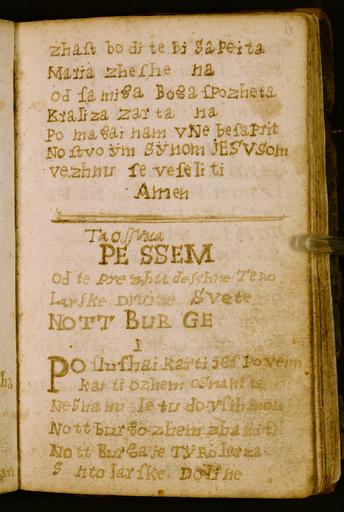 zhaſt bo di te bi Sapeita
Maria zheſhe na
od ſamiga Boga ſpozheta
Kraliza zarta na
Po magai nam vNebeſa prit
No ſtvoỳm Sÿnom JESVSom
vezhnu ſe veſeliti
Amen
PESSEM
od te prezhudeſhne Tero
larſke Divize Svete
NOTT BUR GE
1
Poſluſhai karti jeſt povem
kar ti ozhem osnanite
Neſnanu je tu do vſih
Nott burgo zhem zha
Nott Burga je TYRolarza
S Nto larſke Doline